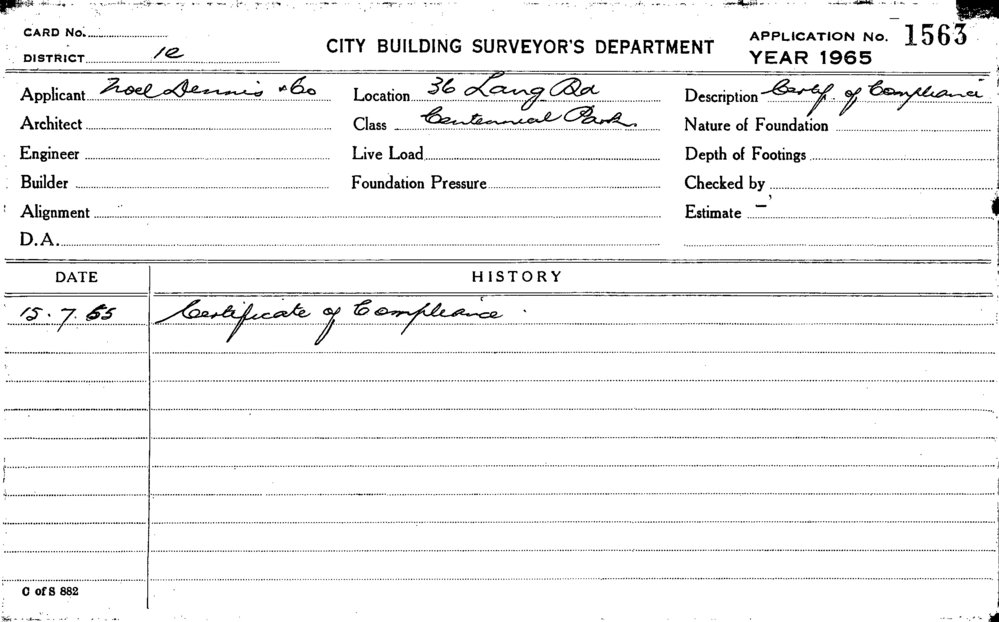 CARD No.
DISTRICT 1e
CITY BUILDING SURVEYOR'S DEPARTMENT
APPLICATION No. 1563
YEAR 1965
Applicant Noel Dennis & Co
Location 36 Lang Rd
Description Certif. of Compliance
Architect
Class Centennial Park.
Nature of Foundation
Engineer
Live Load
Depth of Footings
Builder
Foundation Pressure
Checked by
Alignment
Estimate —
D.A.
DATE
HISTORY
15.7.65 Certificate of Compliance
C of S 882